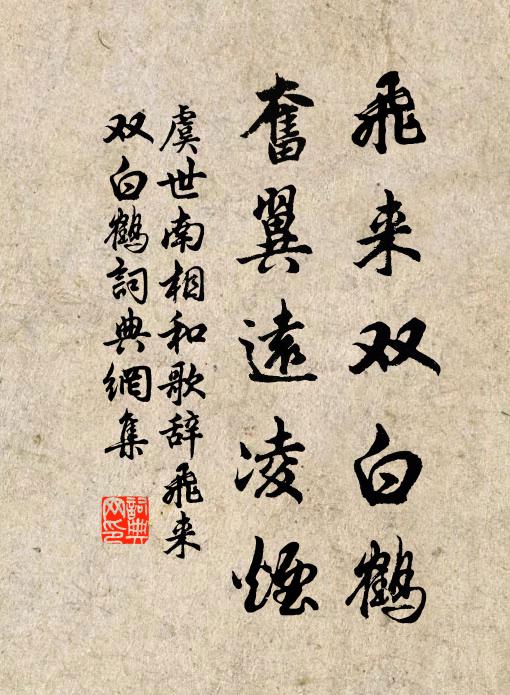 飛来双白鶴
奮翼遠凌煙
虞世南相和歌辞飛来
双白鶴詞典網集
詞典
网印